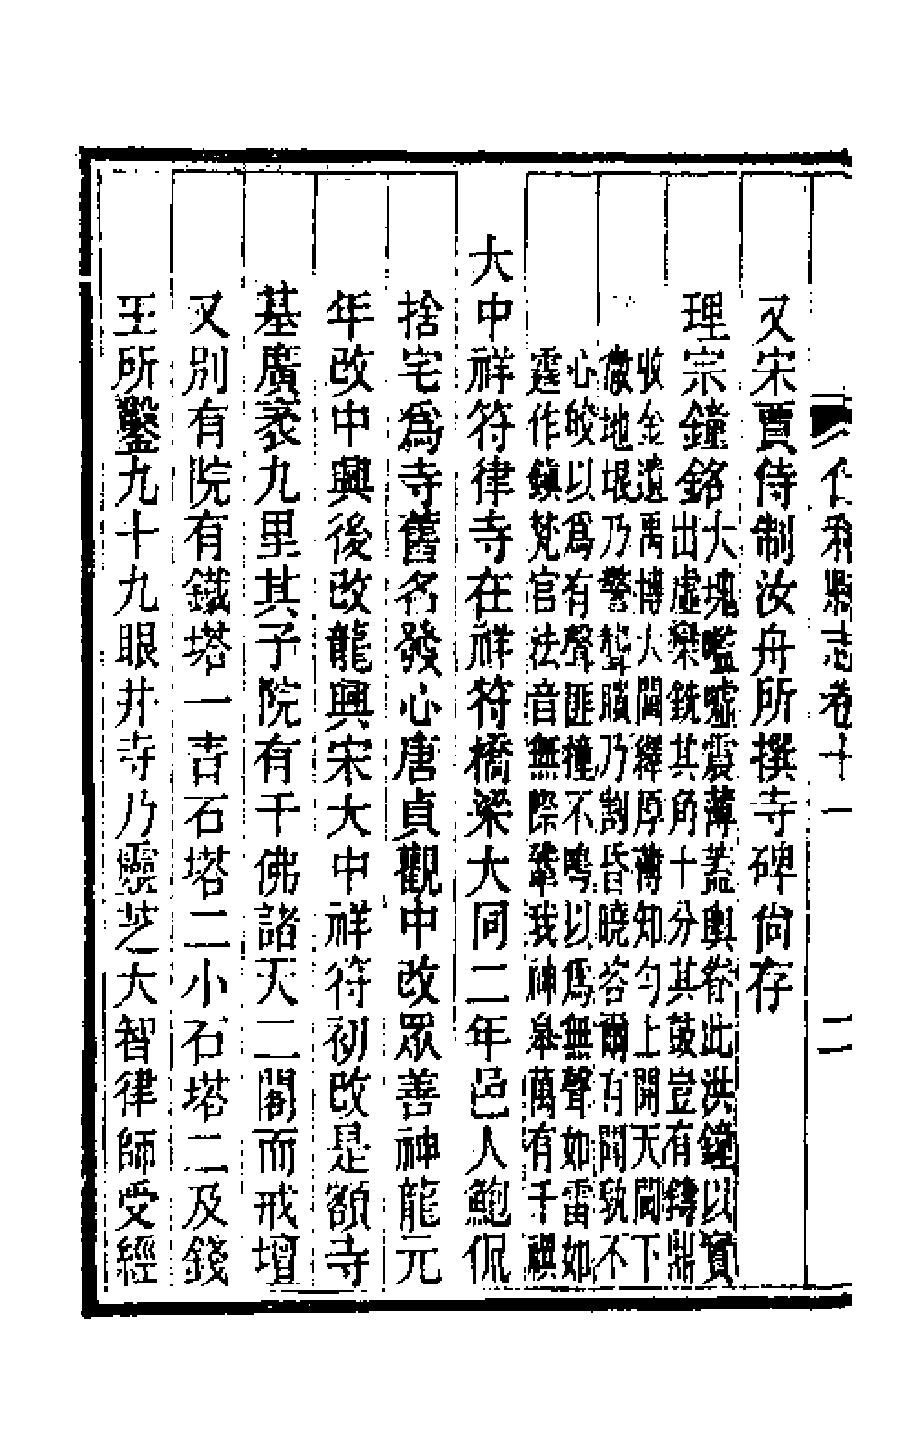 仁和縣志卷十一 二
又宋賈侍制汝舟所撰寺碑尙存
理宗鐘銘
大塊噓震薄蓋輿眷此洪鐘以實
出虛樂銑其角十分其鼓豈有鑄鼎
收金遺禹博人間繹厚薄知勻上開天閶下
徹地垠乃警聾聵乃割昏曉咨爾有聞孰不
心皎以爲有聲匪撞不鳴以爲無聲如雷如
霆作鎮梵官法音無際鞏我神皋萬有千禩
大中祥符律寺在祥符橋梁大同二年邑人鮑侃
捨宅爲寺舊名發心唐貞觀中改眾善神龍元
年改中興後改龍興宋大中祥符初改是額寺
基廣袤九里其子院有千佛諸天二閣而戒壇
又別有院有鐵塔一吉石塔二小石塔二及錢
王所鑿九十九眼井寺乃靈芝大智律師受經